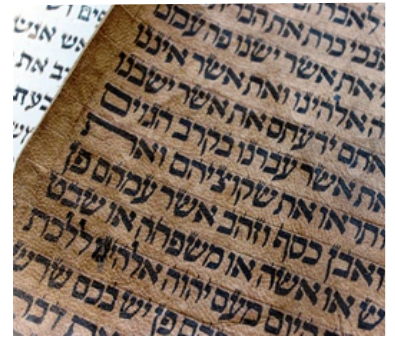 לאברהם
אנכי כרת את הברית
את אשר ישנו פה עמנו
אלהינו ואת אשר איננו
אתם ידעתם את אשר ישבנו
את אשר עברנו בקרב הגוים
ותראו את שקוציהם ואת
ואבן כסף וזהב אשר עמהם פן
או אשה או משפחה או שבט
היום מעם יהוה אלהינו ללכת
פן יש בכם שרש